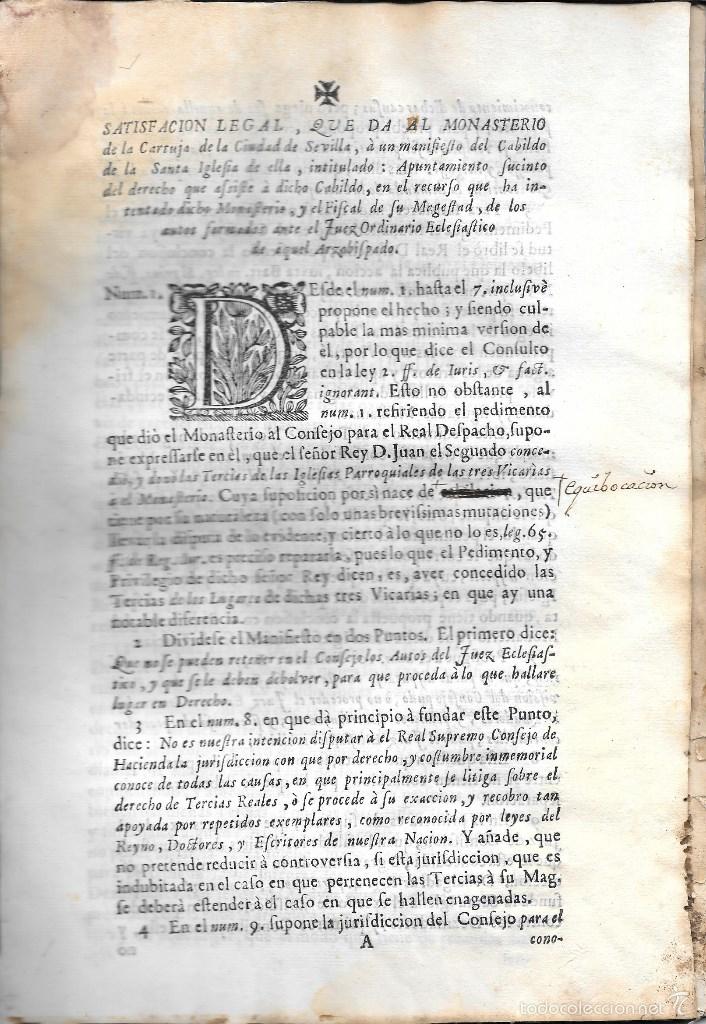 SATISFACION LEGAL, QUE DA AL MONASTERIO
de la Cartuja de la Ciudad de Sevilla, à un manifiesto del Cabildo
de la Santa Iglesia de ella, intitulado: Apuntamiento sucinto
del derecho que assiste à dicho Cabildo, en el recurso que ha in-
tentado dicho Monasterio, y el Fiscal de su Megestad, de los
autos formados ante el Juez Ordinario Eclesiastico
de aquel Arzobispado.
Num. 1. DEsde el num. 1. hasta el 7. inclusivè
propone el hecho; y siendo cul-
pable la mas minima version de
èl, por lo que dice el Consulto
en la ley 2. ff. de Iuris, & fact.
ignorant. Esto no obstante, al
num. 1. refiriendo el pedimento
que diò el Monasterio al Consejo para el Real Despacho, supo-
ne expressarse en èl, que el señor Rey D. Juan el Segundo conce-
diò, y donò las Tercias de las Iglesias Parroquiales de las tres Vicarìas
à el Monasterio. Cuya suposicion por sì nace de †, que
† equibocacion
tiene por su naturaleza (con solo unas brevissimas mutaciones)
llevar la disputa de lo evidente, y cierto à lo que no lo es, leg. 65.
ff. de Reg. Iur. es preciso repararla, pues lo que el Pedimento, y
Privilegio de dicho señor Rey dicen, es, aver concedido las
Tercias de los Lugares de dichas tres Vicarìas; en que ay una
notable diferencia.
2 Dividese el Manifiesto en dos Puntos. El primero dice:
Que no se pueden retener en el Consejo los Autos del Juez Eclesias-
tico, y que se le deben debolver, para que proceda à lo que hallare
lugar en Derecho.
3 En el num. 8. en que dà principio à fundar este Punto,
dice: No es nuestra intencion disputar à el Real Supremo Consejo de
Hacienda la jurisdiccion con que por derecho, y costumbre inmemorial
conoce de todas las causas, en que principalmente se litiga sobre el
derecho de Tercias Reales, ò se procede à su exaccion, y recobro tan
apoyada por repetidos exemplares, como reconocida por leyes del
Reyno, Doctores, y Escritores de nuestra Nacion. Y añade, que
no pretende reducir à controversia, si esta jurisdiccion, que es
indubitada en el caso en que pertenecen las Tercias à su Mag.
se deberà estender à el caso en que se hallen enagenadas.
4 En el num. 9. supone la jurisdiccion del Consejo para el
A
cono-
todocoleccion.net